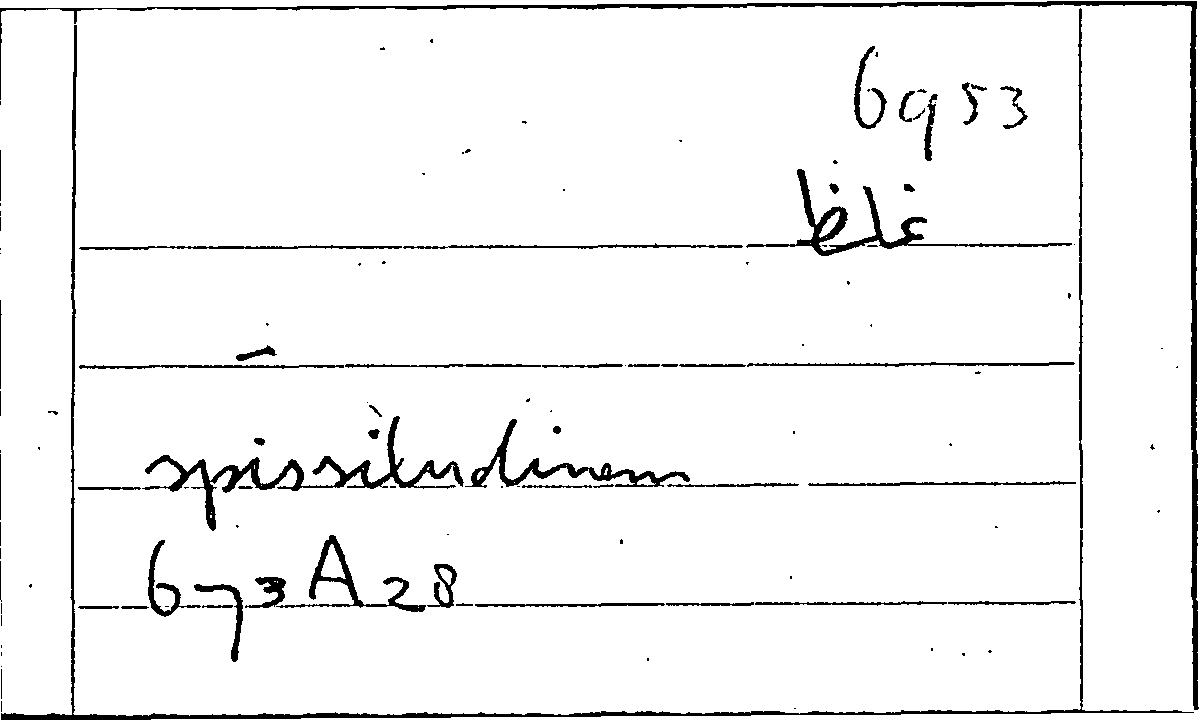 6953
غلظ
–
spissitudinem
673A28